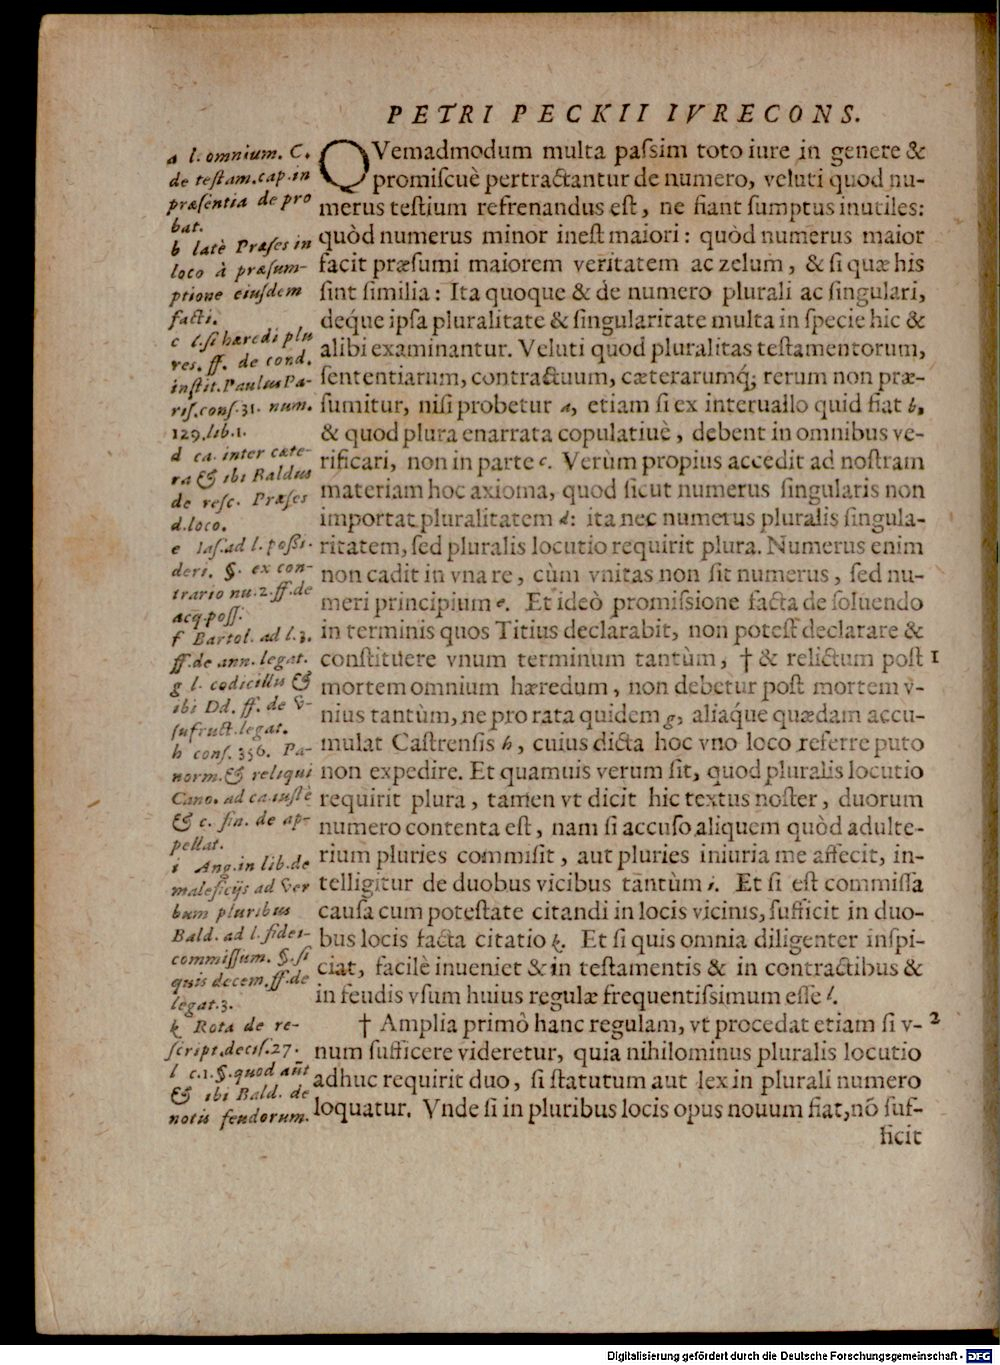 PETRI PECKII IVRECONS.
a l. omnium. C.
de testam. cap. in
præsentia de pro
bat.
b latè Præses in
loco à præsum-
ptione eiusdem
facti.
c l. si hæredi plu
res. ff. de cond.
instit. Paulus Pa-
ris. cons. 31. num.
129. lib. 1.
d ca. inter cæte-
ra & ibi Baldus
de resc. Præses
d. loco.
e Ias. ad l. possi-
deri. §. ex con-
trario nu. 2. ff. de
acq. poss.
f Bartol. ad l. 3.
ff. de ann. legat.
g l. codicillis &
ibi Dd. ff. de v-
sufruct. legat.
h cons. 356. Pa-
norm. & reliqui
Cano. ad ca. iustè
& c. fin. de ap-
pellat.
i Ang. in lib. de
maleficijs ad ver
bum pluribus
Bald. ad l. fidei-
commissum. §. si
quis decem. ff. de
legat. 3.
k Rota de re-
script. decis. 27.
l c. 1. §. quod aūt
& ibi Bald. de
notis feudorum.
QVemadmodum multa paſsim toto iure in genere &
promiſcuè pertractantur de numero, veluti quod nu-
merus teſtium refrenandus eſt, ne fiant ſumptus inutiles:
quòd numerus minor ineſt maiori: quòd numerus maior
facit præſumi maiorem veritatem ac zelum, & ſi quæ his
ſint ſimilia: Ita quoque & de numero plurali ac ſingulari,
deque ipſa pluralitate & ſingularitate multa in ſpecie hic &
alibi examinantur. Veluti quod pluralitas teſtamentorum,
ſententiarum, contractuum, cæterarumq́; rerum non præ-
ſumitur, niſi probetur a, etiam ſi ex interuallo quid fiat b,
& quod plura enarrata copulatiuè, debent in omnibus ve-
rificari, non in parte c. Verùm propius accedit ad noſtram
materiam hoc axioma, quod ſicut numerus ſingularis non
importat pluralitatem d: ita nec numerus pluralis ſingula-
ritatem, ſed pluralis locutio requirit plura. Numerus enim
non cadit in vna re, cùm vnitas non ſit numerus, ſed nu-
meri principium e. Et ideò promiſsione facta de ſoluendo
in terminis quos Titius declarabit, non poteſt declarare &
conſtituere vnum terminum tantùm, † & relictum poſt 1
mortem omnium hæredum, non debetur poſt mortem v-
nius tantùm, ne pro rata quidem g, aliaq́ue quædam accu-
mulat Caſtrenſis h, cuius dicta hoc vno loco referre puto
non expedire. Et quamuis verum ſit, quod pluralis locutio
requirit plura, tamen vt dicit hic textus noſter, duorum
numero contenta eſt, nam ſi accuſo aliquem quòd adulte-
rium pluries commiſit, aut pluries iniuria me affecit, in-
telligitur de duobus vicibus tantùm i. Et ſi eſt commiſſa
cauſa cum poteſtate citandi in locis vicinis, ſufficit in duo-
bus locis facta citatio k. Et ſi quis omnia diligenter inſpi-
ciat, facilè inueniet & in teſtamentis & in contractibus &
in feudis vſum huius regulæ frequentiſsimum eſſe l.
† Amplia primò hanc regulam, vt procedat etiam ſi v- 2
num ſufficere videretur, quia nihilominus pluralis locutio
adhuc requirit duo, ſi ſtatutum aut lex in plurali numero
loquatur. Vnde ſi in pluribus locis opus nouum fiat, nō ſuf-
ficit
Digitalisierung gefördert durch die Deutsche Forschungsgemeinschaft - DFG